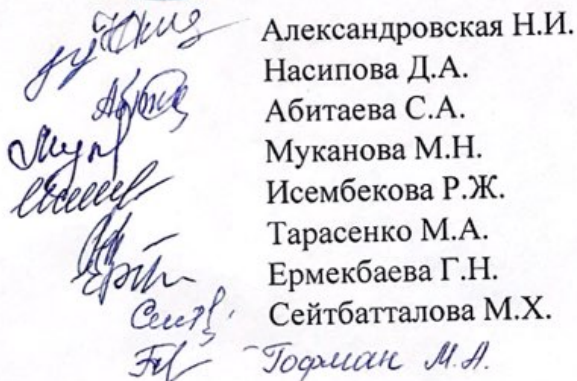 Александровская Н.И.
Насипова Д.А.
Абитаева С.А.
Муканова М.Н.
Исембекова Р.Ж.
Тарасенко М.А.
Ермекбаева Г.Н.
Сейтбатталова М.Х.
Гофман М.А.